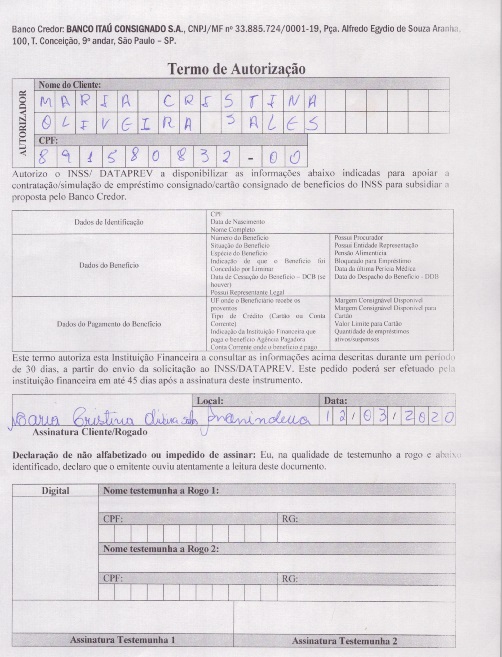 Banco Credor: BANCO ITAÚ CONSIGNADO S.A., CNPJ/MF nº 33.885.724/0001-19, Pça. Alfredo Egydio de Souza Aranha,
100, T. Conceição, 9º andar, São Paulo – SP.
Termo de Autorização
AUTORIZADOR
Nome do Cliente:
MARIA CRISTINA
OLIVEIRA SALES
CPF:
891580832-00
Autorizo o INSS/ DATAPREV a disponibilizar as informações abaixo indicadas para apoiar a
contratação/simulação de empréstimo consignado/cartão consignado de benefícios do INSS para subsidiar a
proposta pelo Banco Credor.
Dados de Identificação
CPF
Data de Nascimento
Nome Completo
Dados do Benefício
Número do Benefício
Situação do Benefício
Espécie do Benefício
Indicação de que o Benefício foi
Concedido por Liminar
Data de Cessação do Benefício – DCB (se
houver)
Possui Representante Legal
Possui Procurador
Possui Entidade Representação
Pensão Alimentícia
Bloqueado para Empréstimo
Data da última Perícia Médica
Data do Despacho do Benefício - DDB
Dados do Pagamento do Benefício
UF onde o Beneficiário recebe os
proventos
Tipo de Crédito (Cartão ou Conta
Corrente)
Indicação da Instituição Financeira que
paga o benefício Agência Pagadora
Conta Corrente onde o benefício é pago
Margem Consignável Disponível
Margem Consignável Disponível para
Cartão
Valor Limite para Cartão
Quantidade de empréstimos
ativos/suspensos
Este termo autoriza esta Instituição Financeira a consultar as informações acima descritas durante um período
de 30 dias, a partir do envio da solicitação ao INSS/DATAPREV. Este pedido poderá ser efetuado pela
instituição financeira em até 45 dias após a assinatura deste instrumento.
Local: Data:
Maria Cristina Ananindeua 12/03/2020
Assinatura Cliente/Rogado
Declaração de não alfabetizado ou impedido de assinar: Eu, na qualidade de testemunho a rogo e abaixo
identificado, declaro que o emitente ouviu atentamente a leitura deste documento.
Digital
Nome testemunha a Rogo 1:
CPF: RG:
Nome testemunha a Rogo 2:
CPF: RG:
Assinatura Testemunha 1 Assinatura Testemunha 2